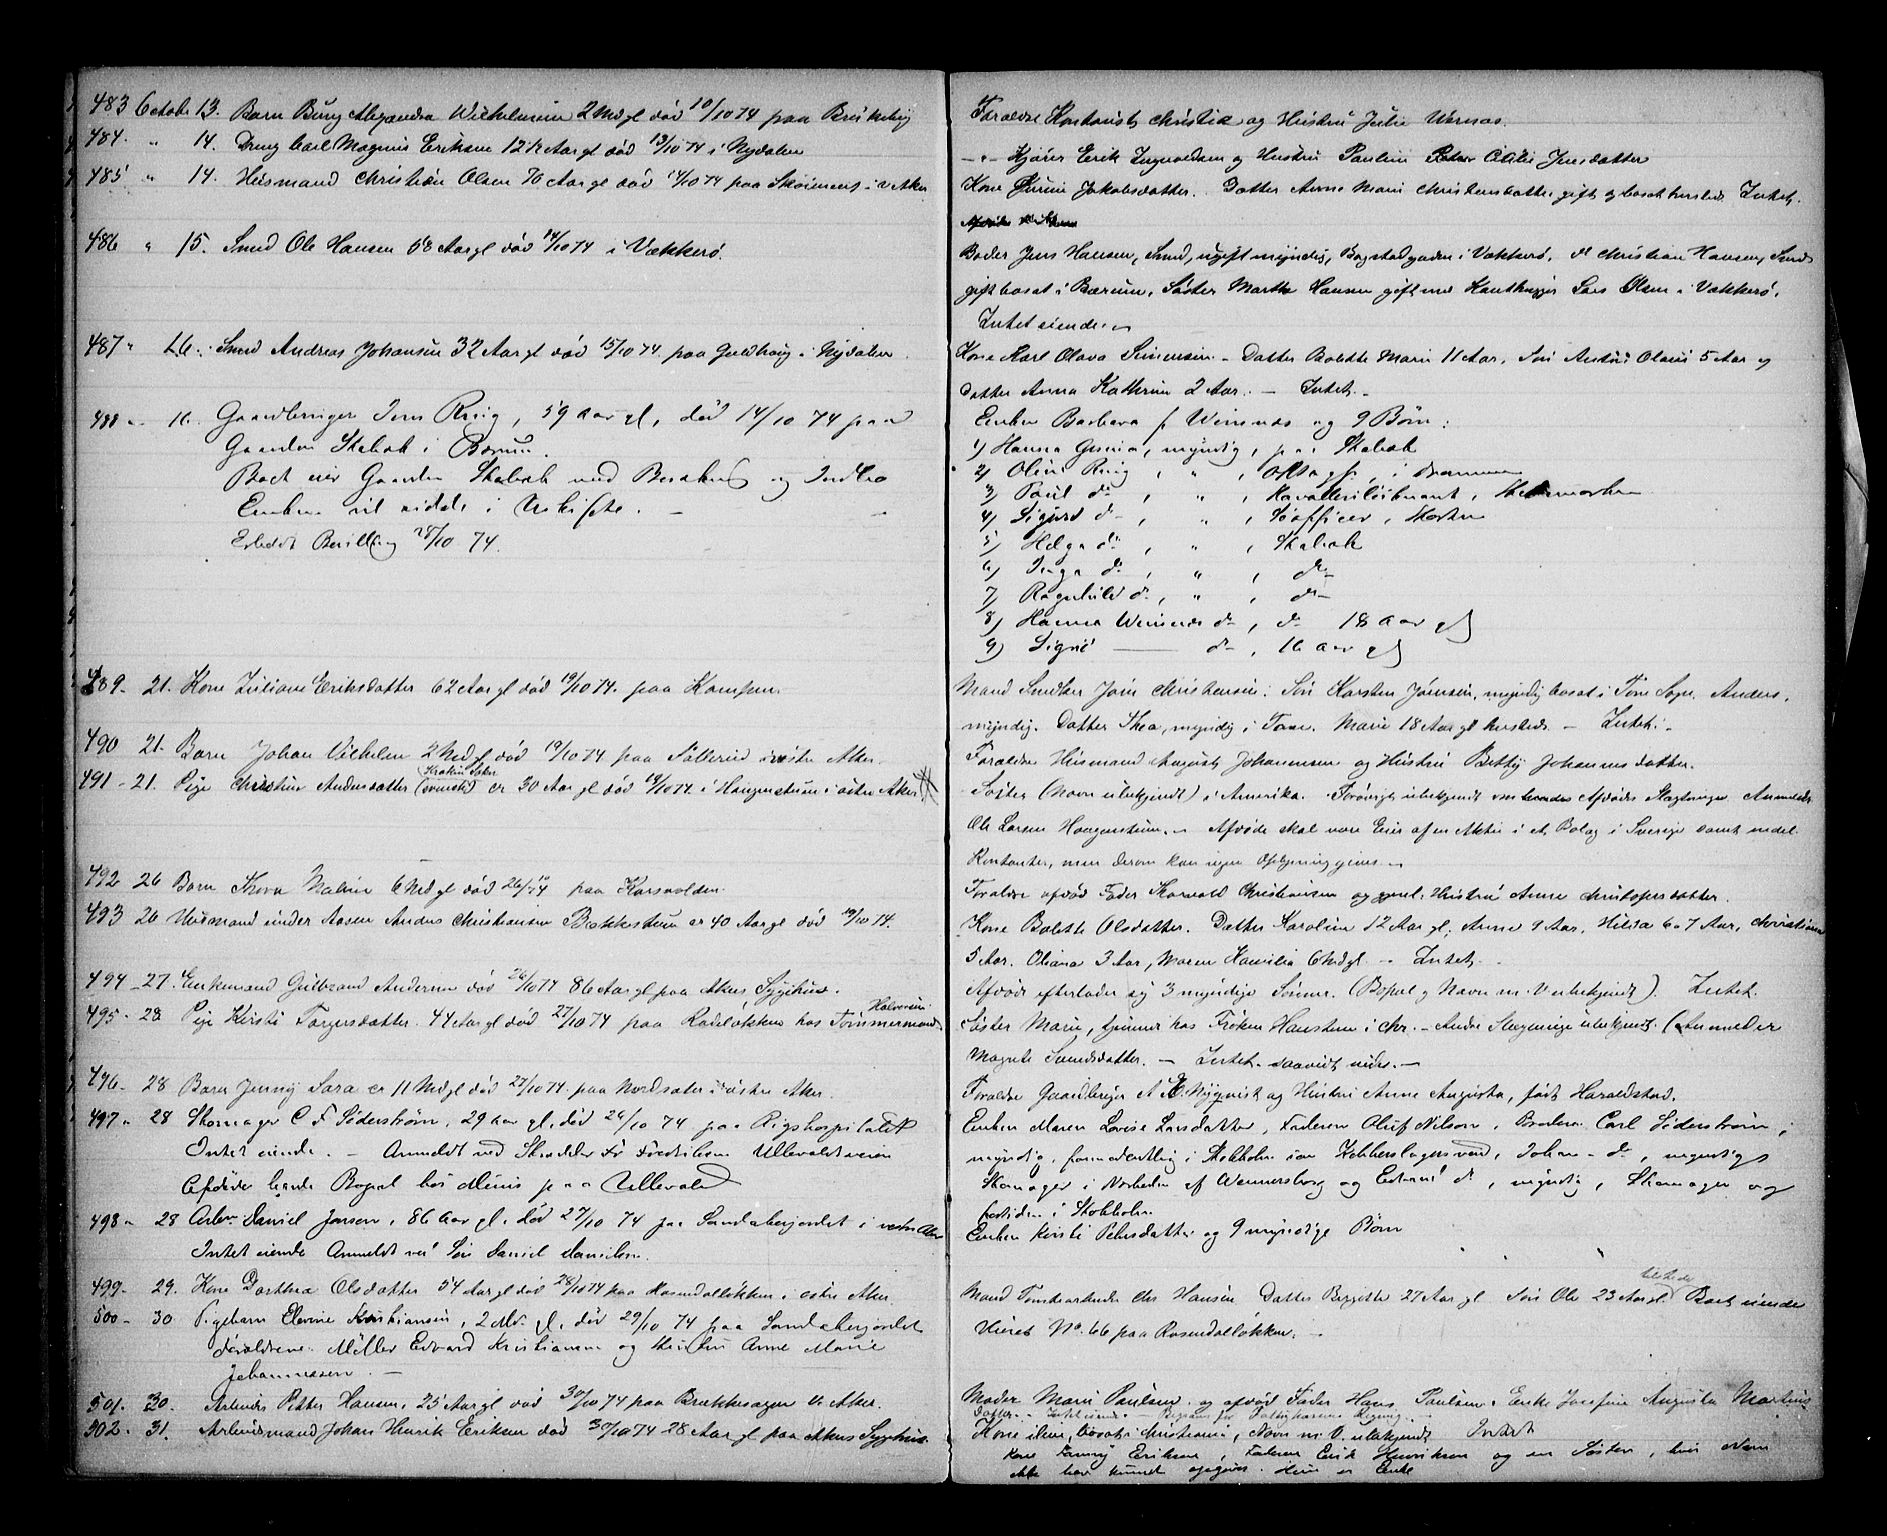 483 Octobr 13. Barn Alexandra Wilhelmine 2 Mdgl død 10/10 74 paa
484. " 14. Dreng Carl Magnus Eriksen 12 1/2 Aar gl død 13/10 74 i Nydalen
485 " 14. Huusmand Christian Olsen 70 Aar gl død 14/10 74 paa i V. Aker
486 " 15. Smed Ole Hansen 58 Aar gl død 14/10 74 i Vækkerø.
487 " 16. Smed Andreas Johansen 32 Aar gl død 15/10 74. paa i Nydalen
488 " 16. Gaardbruger Jens Ring, 59 aar gl, død 14/10 74 paa
Gaarden Skabak i Bærum.
Boet eier Gaarden Skabak med Besætning og Indbo
Enken vil sidde i Uskifte. –
Erholdt Bevilling 28/10 74.
489 - 21. Kone Juliane Eriksdatter 62 Aar gl død 19/10 74. paa Kampen.
490 21. Barn Johan Vilhelm 2 Mdgl død 19/10 74 paa i østre Aker.
491 - 21. Pige Christine Andersdatter (svensk) er 30 Aar gl død 19/10 74. i Haugerstuen i østre Aker.
492 26 Barn Thora Malvine 6 Mdgl død 26/10 74 paa Korsvolden.
493 26 Huusmand under Aasen Anders Christiansen Bækkestuen er 40 Aar gl død 19/10 74.
494 - 27. Enkemand Gulbrand Andersen død 26/10 74 86 Aar gl paa Akers Sygehuus.
495 - 28 Pige Kirsti Torgersdatter 44 Aar gl død 27/10 74 paa Rodeløkken hos Tømmermand
Halvorsen
496 - 28 Barn Jenny Sara er 11 Mdgl død 27/10 74. paa Nordsæter i østre Aker.
497 " 28 Skomager C. F. Søderstrøm, 29 aar gl, død 26/10 74 paa Rigshospitalet
Intet eiende. – Anmeldt ved Fredriksen Ullevaldsveien
Afdøde havde Bopæl hos Munis paa Ullevold
498 " 28 Arbm Daniel Jansen, 86 aar gl. død 27/10 74 paa Sandakerjordet i vestre Aker
Intet eiende Anmeldt ved Søn Daniel Danielsen.
499 - 29. Kone Dorthea Olsdatter 54 Aar gl død 28/10 74 paa Rosendalløkken i østre Aker.
500 - 30 Pigebarn Elvine Kristiansen, 2 Md. gl, død 29/10 74 paa Sandakerjordet
Forældrene: Møller Edvard Kristiansen og Hustru Anne Marie
Johannessen. –
501. 30. Arbeider Petter Hansen, 25 Aar gl død 30/10 74 paa Brækkesagen V. Aker.
502. 31. Arbeidsmand Johan Henrik Eriksen død 30/10 74 28 Aar gl paa Akers Sygehuus.
Forældre Kontorist Christie og Hustru Julie Wernøs.
– " – Kjører Erik Ingvoldsen og Hustru Pauline Cecilie Jensdatter
Kone Jakobsdatter. Datter Anne Marie Christensdatter gift og bosat hersteds Intet.
Broder Jens Hansen, Smed, ugift myndig, i Vækkerø, do Christian Hansen, Smed
gift bosat i Bærum, Søster Marthe Hansen gift med Lars Olsen i Vækkerø.
Intet eiende.
Kone Karl Olava Simensen. – Datter Bolette Marie 11 Aar, Søn Anton Olaus 5 Aar og
datter Anna Kathrine 2 Aar. – Intet. –
Enken Barbara f. Wensnøs og 9 Børn:
1) Hanna myndig, paa Skabak
2) Oline Ring, " , i Drammen
3) Paul do , " , Kavalleriløitnant,
4) Sigurd do – , " , Søofficer, Horten
5) Helga do , " , Skabak
6) Inga do , " , do –
7) Ragnhild do , " , do –
8) Hanna do , do 18 aar gl
9) Signe —— do , 16 aar gl
Mand Jørn Christensen. Søn Karsten Jørnsen, myndig bosat i Anders,
myndig. Datter Thea, myndig i Marie 18 Aar gl hersteds. – Intet. –
Forældre Huusmand August Johannesen og Hustru Betty Johannesdatter.
Søster (Navn ubekjendt) i Amerika. Forøvrigt ubekjendt om Afdødes Slægtninger. Anmelder
Ole Larsen Haugerstuen. – Afdøde skal være Eier af en Aktie i et Bolag i Sverige samt endel
Kontanter, men derom kan ingen Oplysning gives. –
Forældre afdød Fader Thorvald Christiansen og Hustru Anne Christophersdatter.
Kone Bolette Olsdatter. Datter Karoline 12 Aar gl, Anne 9 Aar, Hilda 6 a 7 Aar, Christiane
5 Aar. Oliana 3 Aar, Maren Kamilia 6 Mdgl – Intet. –
Afdøde efterlader sig 3 myndige Sønner. (Bopæl og Navn m. V. ubekjendt). Intet.
Søster Marie, tjener hos Frøken Hansteen i Chr. – Andre Slægtninge ubekjendt. (Anmelder
Magnete Svendsdatter. – Intet saavidt vides. –
Forældre Gaardbruger A. E. Nyqvist og Hustru Anne Augusta, født Haraldstad.
Enken Maren Lovise Larsdatter, Faderen Oluf Nilson, Broderen Carl Søderstrøm,
myndig, formodentlig i Stokholm som Kobberslagersvend, Johan – do , myndig
Skomager i Nærheden af Wennersborg og Edvard do , myndig, Skomager og
fortiden i Stokholm
Enken Kirsti Pedersdatter og 9 myndige Børn
Mand Tomtearbeider Chr Hansen Datter Bergitte 27 Aar gl Søn Ole 23 Aar gl. Boet eiende
tilstede
Huset No. 66 paa Rosendalløkken. –
Moder Marie Paulsen og afdød Fader Hans Paulsen. Enke Josefine Augusta Martins
Datter.
Kone ilive, bosat i Christiania, Navn m. V. ubekjendt Intet
Kone Fanny Eriksen, Faderen Erik Henriksen og en Søster, hvis Navn
ikke har kunnet opgives. Hun er Enke